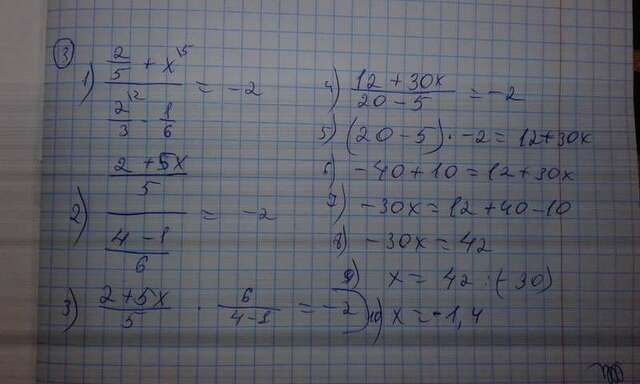 3
1) (2/5 + x^15) / (2^12/3 - 1/6) = -2
2) ((2+5x)/5) / ((4-1)/6) = -2
3) (2+5x)/5 · 6/(4-1) = -2
4) (12+30x)/(20-5) = -2
5) (20-5)·-2 = 12+30x
6) -40+10 = 12+30x
7) -30x = 12+40-10
8) -30x = 42
9) x = 42:(-30)
10) x = -1,4